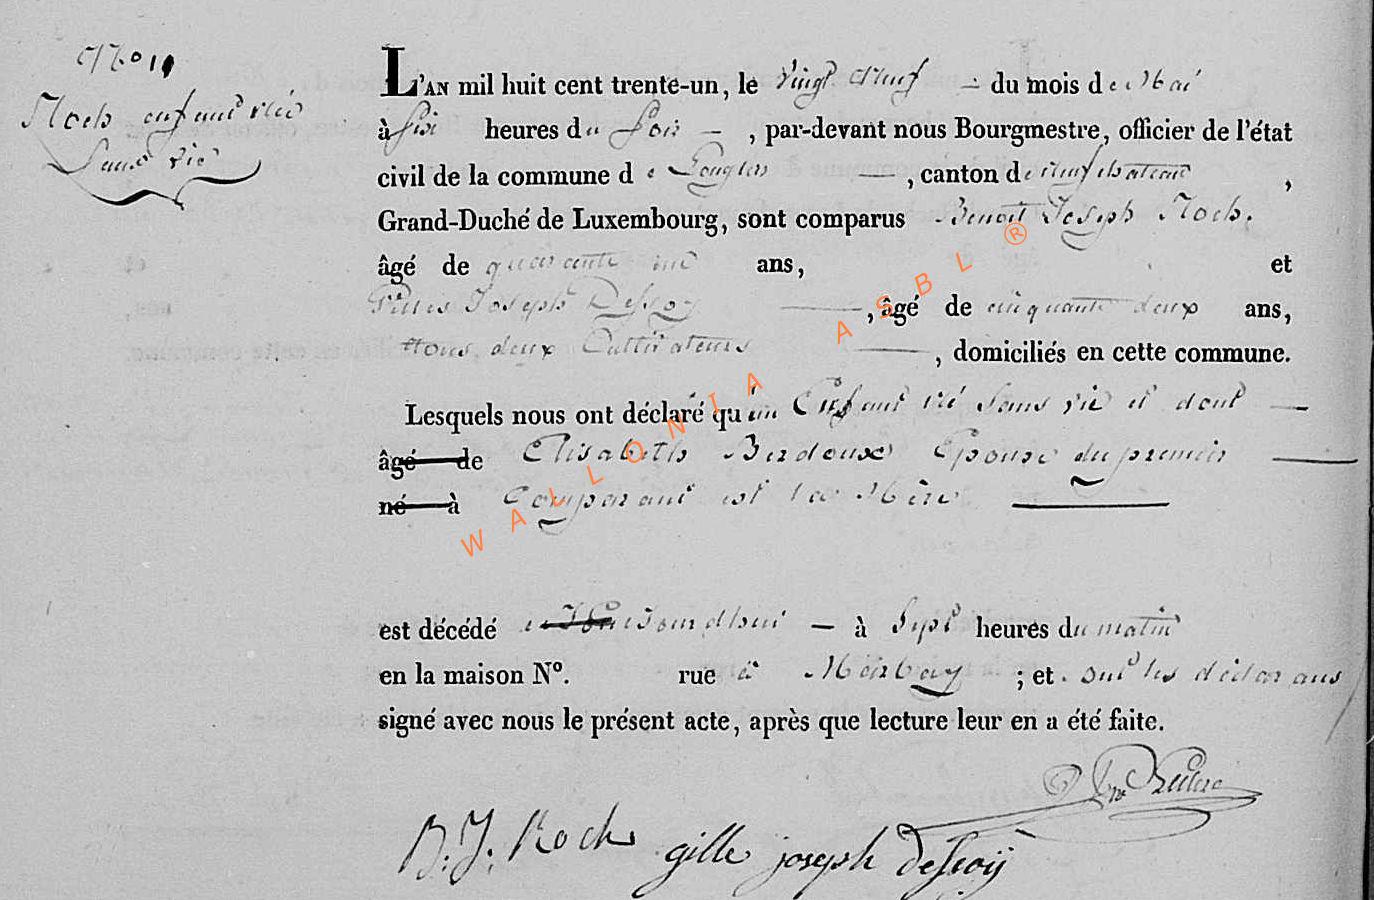 N.º 11
Roch enfant née
Sans vie
L'AN mil huit cent trente-un, le vingt neuf — du mois de Mai
à six heures du soir — , par-devant nous Bourgmestre, officier de l'état
civil de la commune de Longlier — , canton de neufchateau ,
Grand-Duché de Luxembourg, sont comparus Benoit Joseph Roch.
âgé de quarante ans, et
Gilles Joseph Dessoy — , âgé de cinquante deux ans,
tous deux Cultivateurs — , domiciliés en cette commune.
Lesquels nous ont déclaré qu'un Enfant né sans vie et dont —
âgé de Elisabeth Berdouxe Epouse du premier —
né à Comparant est la Mère —
est décédé aujourdhui — à Sept heures du matin
en la maison Nº. rue à Morbay ; et ont les déclarans
signé avec nous le présent acte, après que lecture leur en a été faite.
B. J. Roch gille joseph dessoÿ
WALLONIA ASBL ®